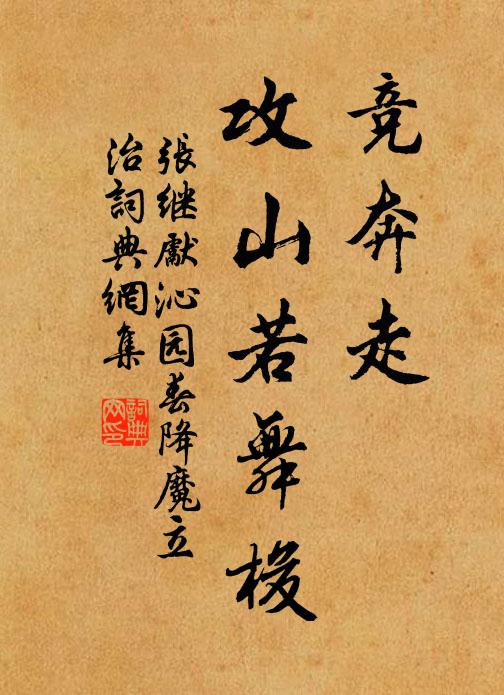 竞奔走
攻山若舞梭
張继獻沁园春降魔立
治詞典網集
詞典
网印